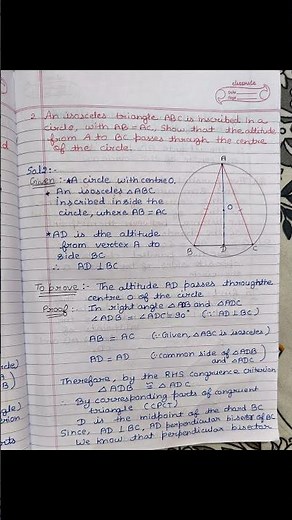 classmate
Date
Page
2. An isosceles triangle ABC is inscribed in a
circle, with AB = AC. Show that the altitude
from A to BC passes through the centre
of the circle.
Soln:-
Given :- *A circle with centre O.
* An isosceles △ABC
inscribed inside the
circle, where AB = AC
A
O
B D C
* AD is the altitude
from vertex A to
side BC
∴ AD ⊥ BC
To prove :- The altitude AD passes through the
centre O of the circle
Proof :- In right angle △ADB and △ADC
∠ADB = ∠ADC = 90° (∵ AD ⊥ BC)
AB = AC (∵ Given, △ABC is isosceles)
AD = AD (∵ common side of △ADB
and △ADC)
Therefore, by the RHS congruence criterion
△ADB ≅ △ADC
∴ By corresponding parts of congruent
triangle (CPCT)
D is the midpoint of the chord BC
Since, AD ⊥ BC, AD perpendicular bisector of BC
We know that perpendicular bisector